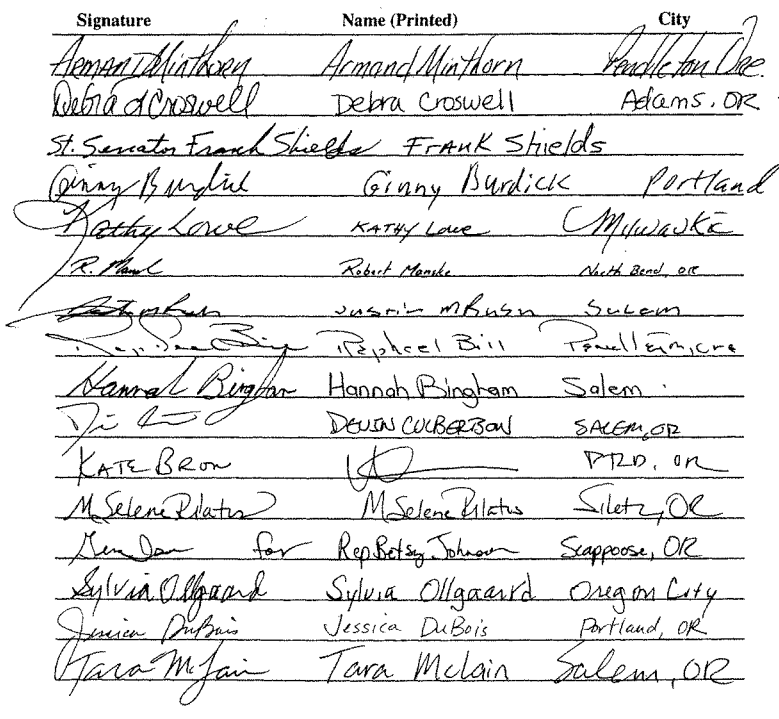 Signature Name (Printed) City
Armand Minthorn Armand Minthorn Pendleton Ore.
Debra J Croswell Debra Croswell Adams, OR
St. Senator Frank Shields FRANK Shields
Ginny Burdick Ginny Burdick Portland
Kathy Lowe KATHY Lowe Milwaukie
R. Robert Manske North Bend, OR
Justin Salem
Raphael Bill
Hannah Bingham Hannah Bingham Salem
DEVIN CULBERTSON SALEM, OR
KATE BROWN PTLD, OR
M Selene Rilatos M Selene Rilatos Siletz, OR
for Rep Betsy Johnson Scappoose, OR
Sylvia Ollgaard Sylvia Ollgaard Oregon City
Jessica DuBois Jessica DuBois Portland, OR
Tara McLain Tara McLain Salem, OR